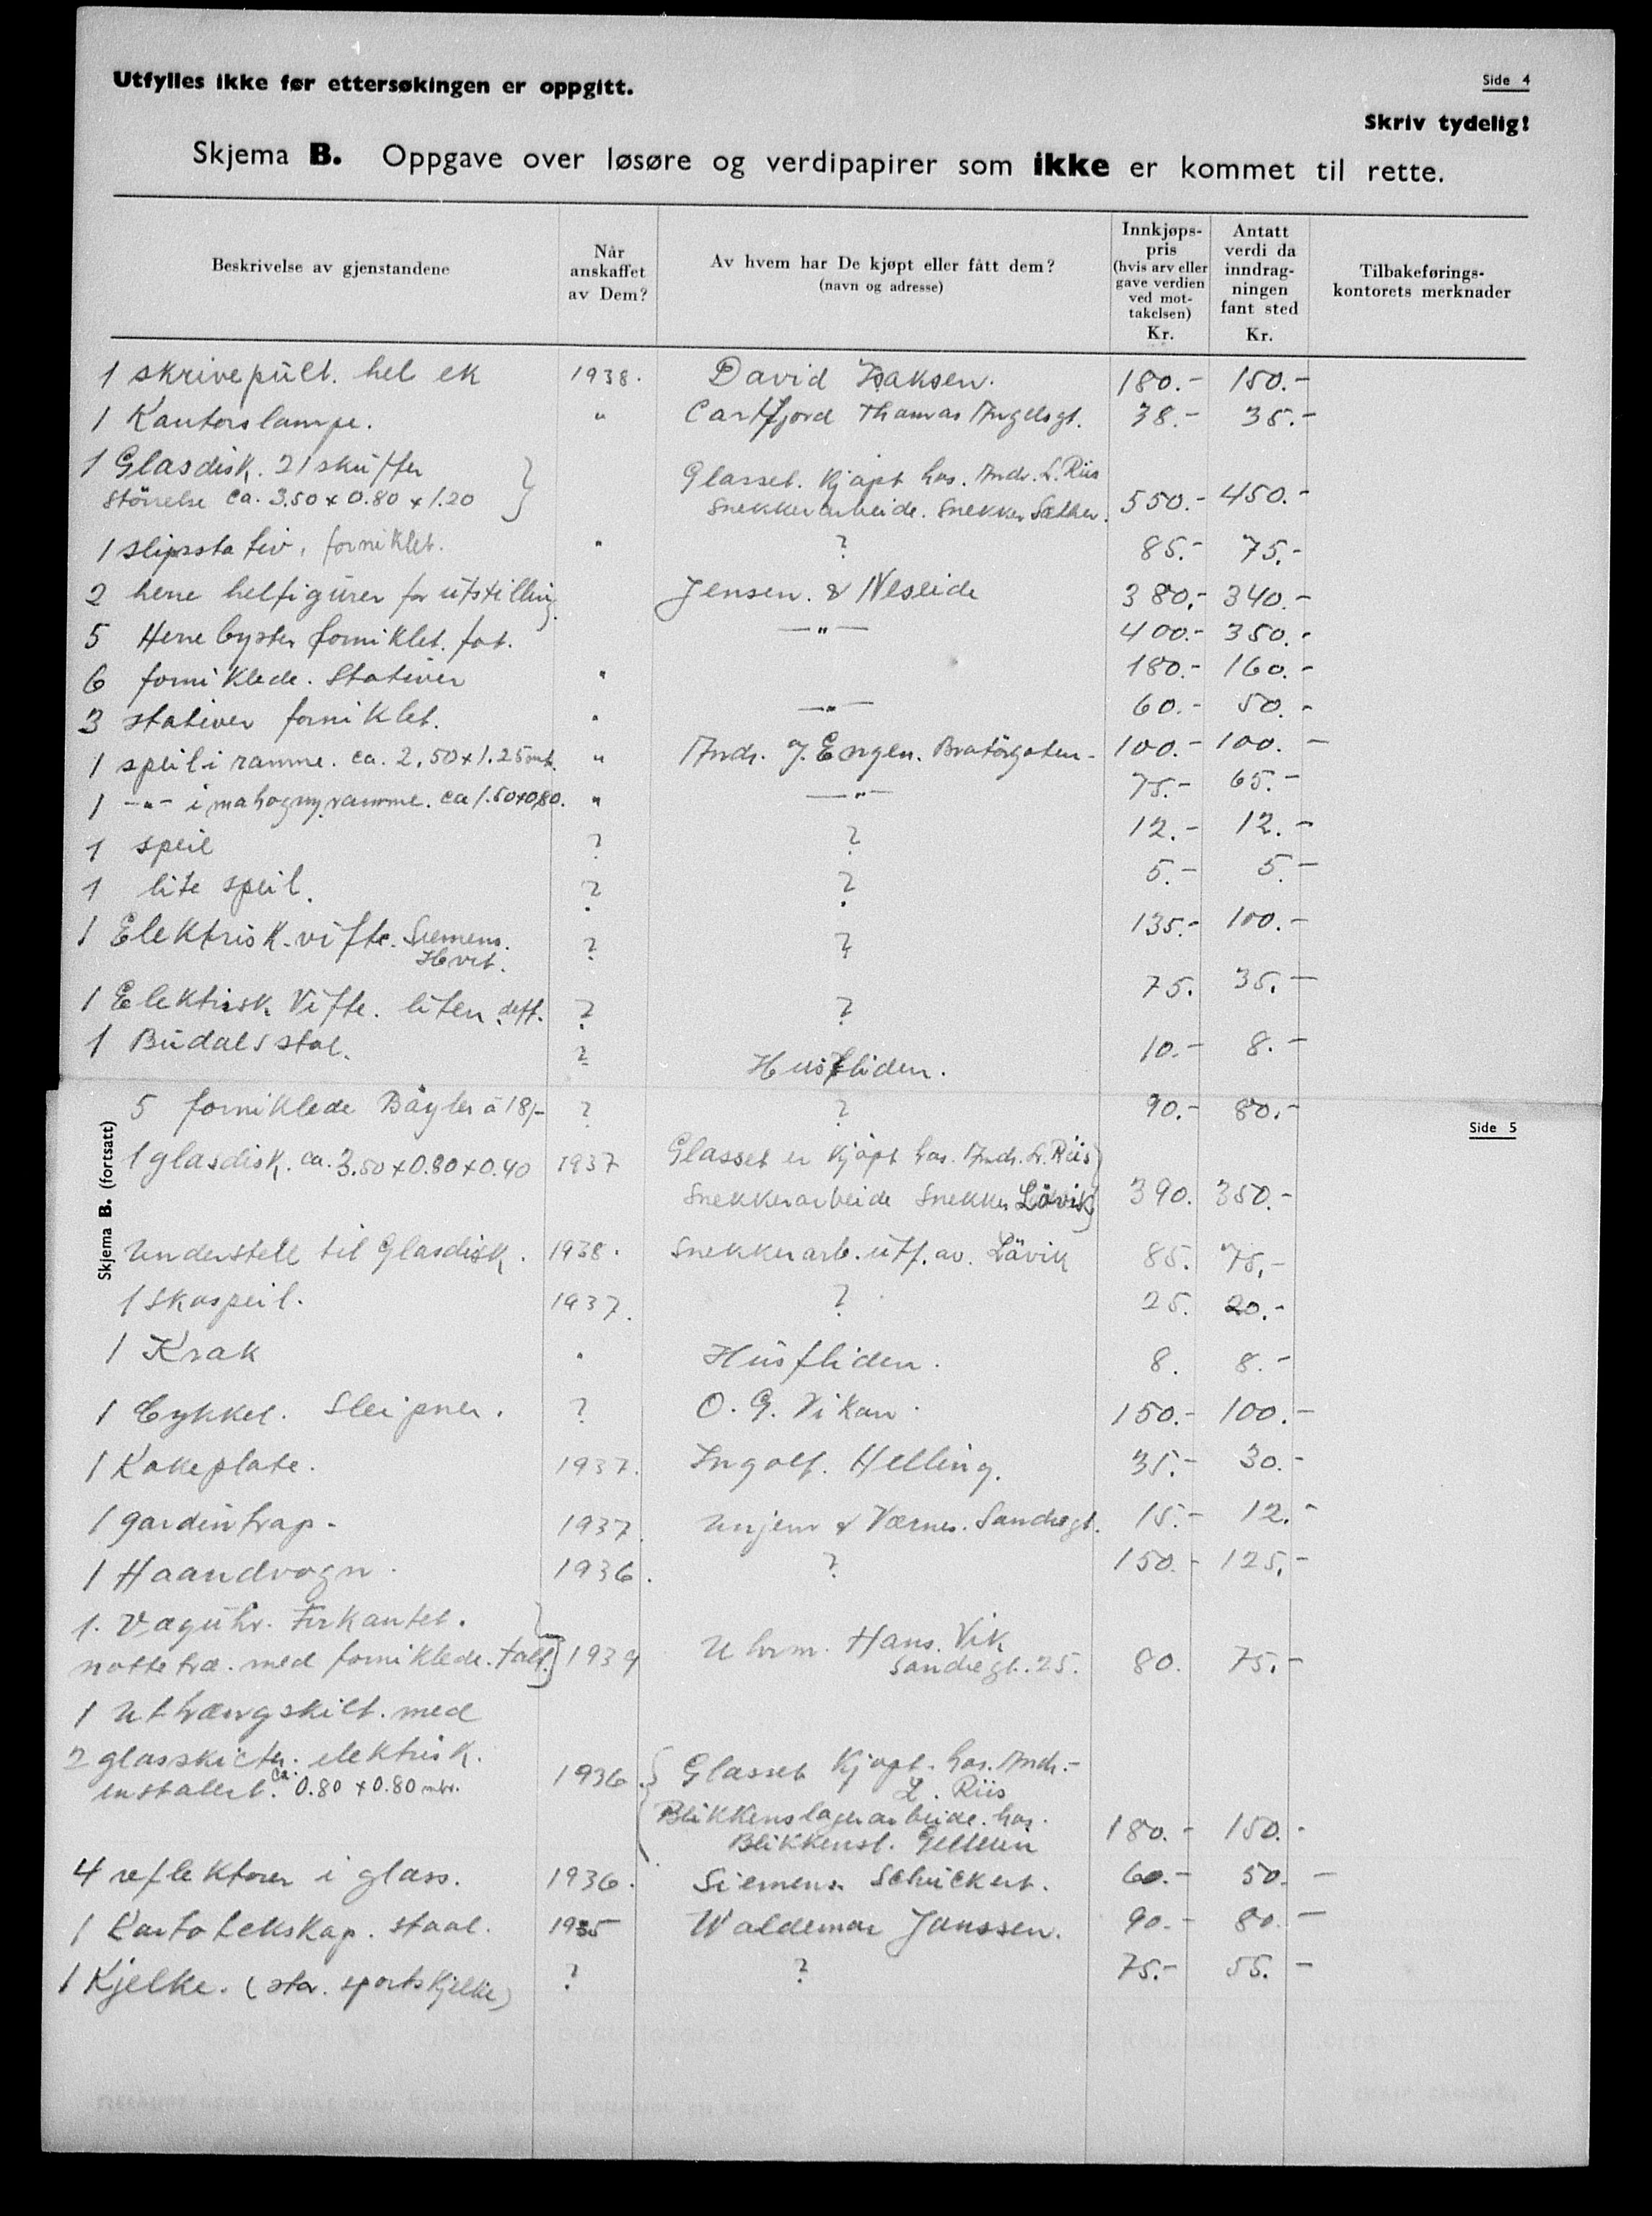 Utfylles ikke før ettersøkingen er oppgitt.
Side 4
Skriv tydelig!
Skjema B. Oppgave over løsøre og verdipapirer som ikke er kommet til rette.
Beskrivelse av gjenstandene
Når anskaffet av Dem?
Av hvem har De kjøpt eller fått dem? (navn og adresse)
Innkjøps-pris (hvis arv eller gave verdien ved mot-takelsen) Kr.
Antatt verdi da inndrag-ningen fant sted Kr.
Tilbakeførings-kontorets merknader
1 skrivepült. hel ek 1938. David Isaksen. 180.- 150.-
1 Kontorslampe. " Cartfjord Thomas Angelsgt. 38.- 35.-
1 Glasdisk. 21 sküffer
Störrelse ca. 3.50 x 0.80 x 1.20 } Glasset. Kjöpt hos. Andr. L. Riis
Snekkerarbeide. Snekker Sæther. 550.- 450.-
1 slipsstativ, forniklet. " ? 85.- 75.-
2 herre helfigürer for ütstilling. Jensen. & Neseide 380.- 340.-
5 Herre byster forniklet. fot. —"— 400.- 350.-
6 forniklede. Stativer " 180.- 160.-
3 stativer forniklet. " —"— 60.- 50.-
1 speil i ramme. ca. 2,50 x 1.25 mt. " Andr. J. Engen. Bratörgaten - 100.- 100.-
1 -"- i mahogny ramme. ca 1.50x0,80. " —"— 75.- 65.-
1 speil ? ? 12.- 12.-
1 lite speil. ? ? 5.- 5.-
1 Elektrisk. vifte. Siemens.
Hvit. ? ? 135.- 100.-
1 Elektrisk. Vifte. liten. ? ? 75. 35.-
1 Büdalsstol. ? Husfliden. 10.- 8.-
5 forniklede Böyler á 18/- ? ? 90.- 80.-
Side 5
Skjema B. (fortsatt)
1 glasdisk. ca. 3.50 x 0.80 x 0.40 1937 Glasset er kjöpt hos. Andr. L. Riis }
Snekkerarbeide Snekker Lövik 390. 350.-
Understell til Glasdisk. 1938. Snekkerarb. ütf. av. Lövik 85. 75,-
1 Skospeil. 1937. ? 25. 20.-
1 Krak " Hüsfliden. 8. 8.-
1 Cykkel. Sleipner. ? O. G. Vikan. 150.- 100.-
1 Kokeplate. 1937. Ingolf. Helling. 35.- 30.-
1 gardintrap- 1937. Unjem & Værnes. Sandregt. 15.- 12.-
1 Haandvogn. 1936. ? 150.- 125,-
1. Vægühr. Firkantet.
nøttetræ. med forniklede. tall. } 1939 Uhrm. Hans. Vik
Sandregt. 25. 80. 75.-
1 Uthængskilt. med
2 glasskilter. elektrisk.
installert. ca. 0.80 x 0.80 mtr. 1936. { Glasset Kjöpt. hos. Andr.-
L. Riis
Blikkenslagerarbeide. hos.
Blikkensl. 180.- 150.-
4 reflektorer i glass. 1936. Siemens Schückert. 60.- 50.-
1 Kartotekskap. staal. 1935 Waldemar Janssen. 90.- 80.-
1 Kjelke. (stor. sportskjelke) ? ? 75.- 55.-